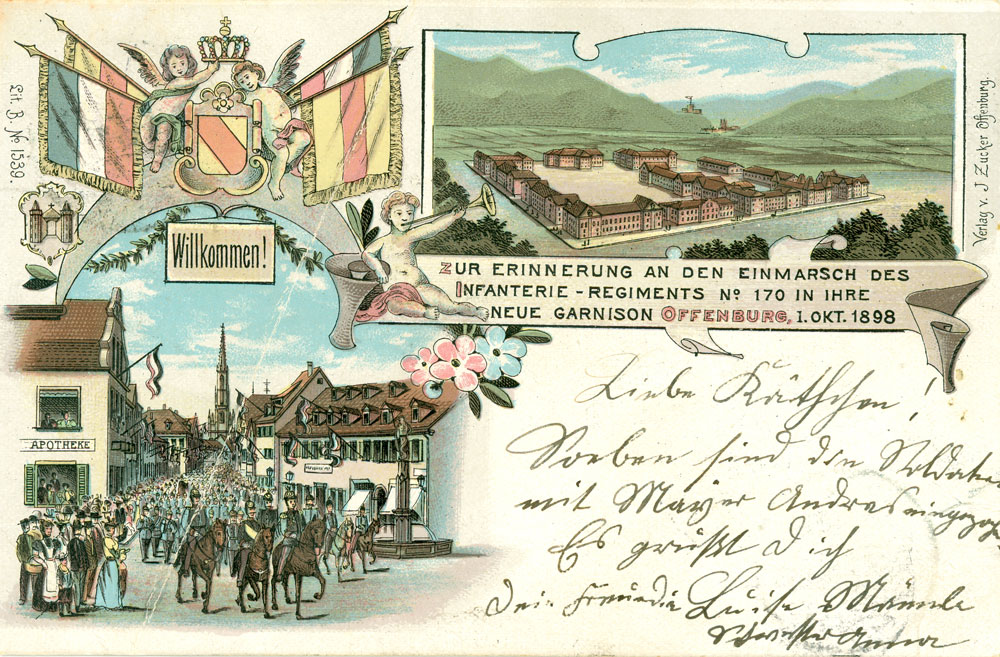 Lit. B. No 1539.
Willkommen!
APOTHEKE
Verlag v. J. Zucker Offenburg.
ZUR ERINNERUNG AN DEN EINMARSCH DES
INFANTERIE-REGIMENTS No 170 IN IHRE
NEUE GARNISON OFFENBURG, 1. OKT. 1898
Liebe Käthchen!
Soeben sind die Soldaten
mit Mayer Andres eingezogen
Es grüßt Dich
Dein Freundin Luise Männle
Schwester Anna